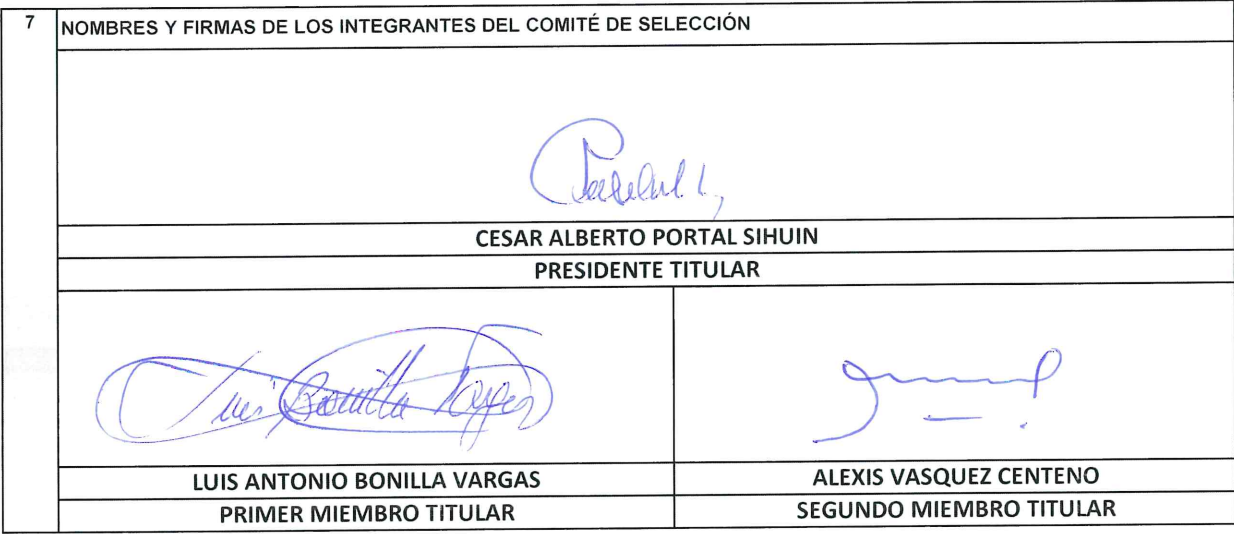 7
NOMBRES Y FIRMAS DE LOS INTEGRANTES DEL COMITÉ DE SELECCIÓN
CESAR ALBERTO PORTAL SIHUIN
PRESIDENTE TITULAR
Luis Bonilla
LUIS ANTONIO BONILLA VARGAS
PRIMER MIEMBRO TITULAR
ALEXIS VASQUEZ CENTENO
SEGUNDO MIEMBRO TITULAR